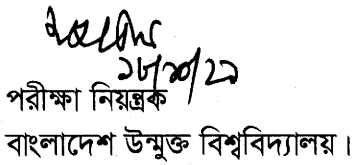 ১৮/১০/২১
পরীক্ষা নিয়ন্ত্রক
বাংলাদেশ উন্মুক্ত বিশ্ববিদ্যালয়।